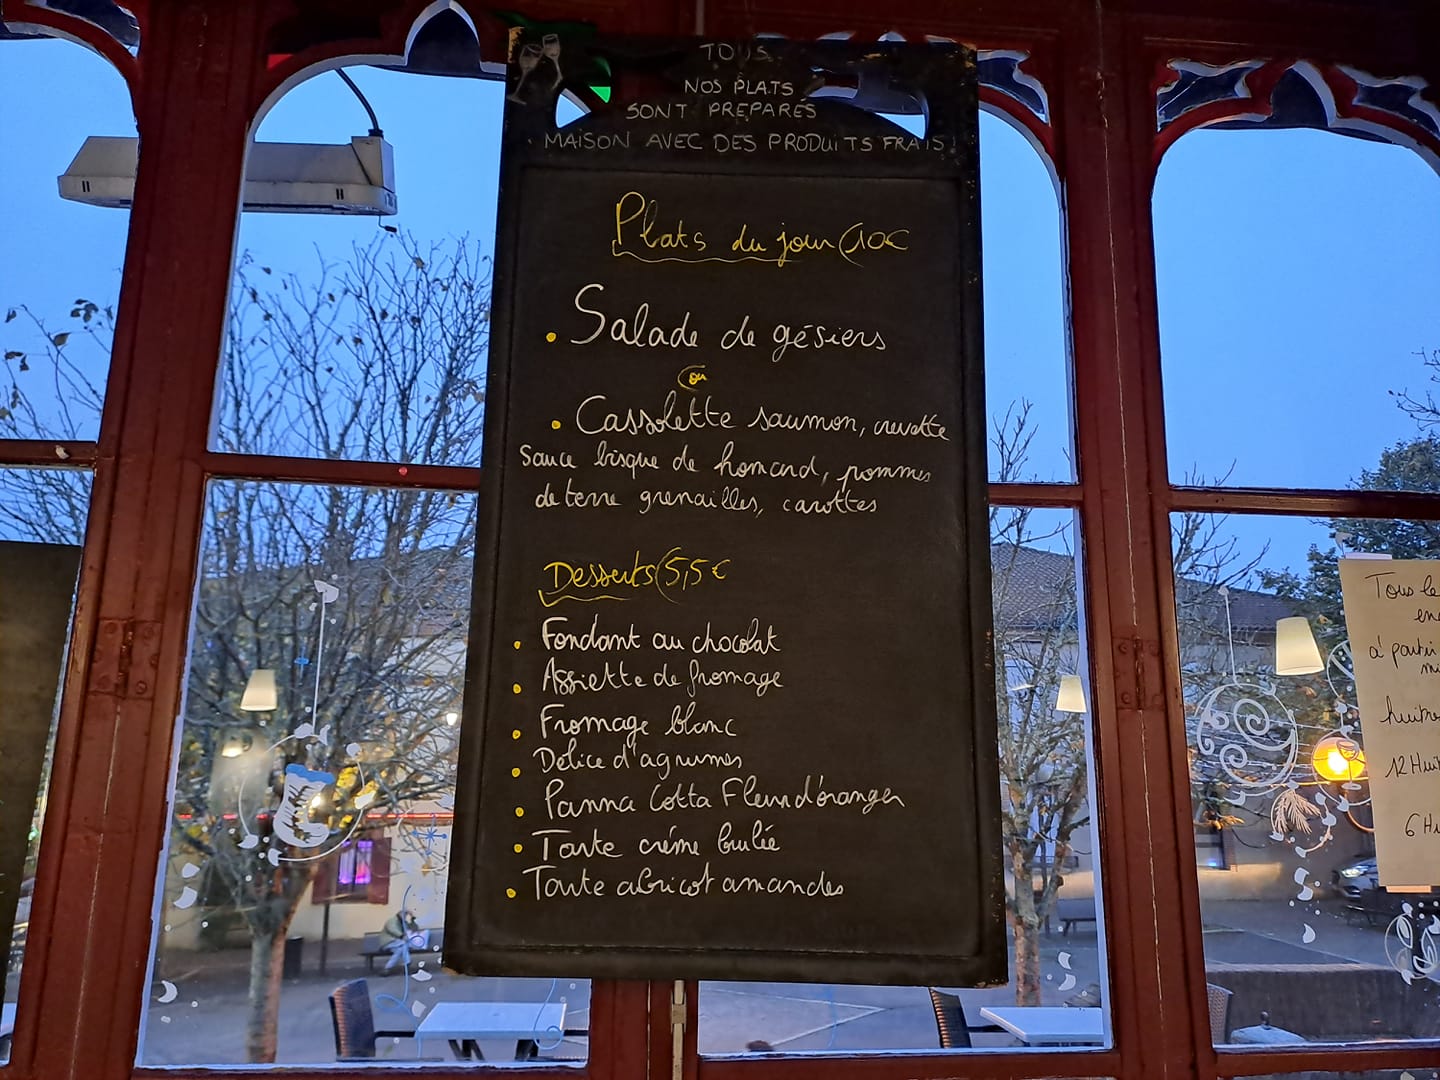 TOUS
NOS PLATS
SONT PRÉPARÉS
MAISON AVEC DES PRODUITS FRAIS!
Plats du jour (10€
• Salade de gésiers
ou
• Cassolette saumon, crevette
Sauce bisque de homard, pommes
de terre grenailles, carottes
Desserts (5,5€
• Fondant au chocolat
• Assiette de fromage
• Fromage blanc
• Délice d'agrumes
• Panna Cotta Fleur d'oranger
• Tarte crème brulée
• Tarte abricot amandes
Tous le
en
à partir
mi
huitre
12 Huit
6 Hu